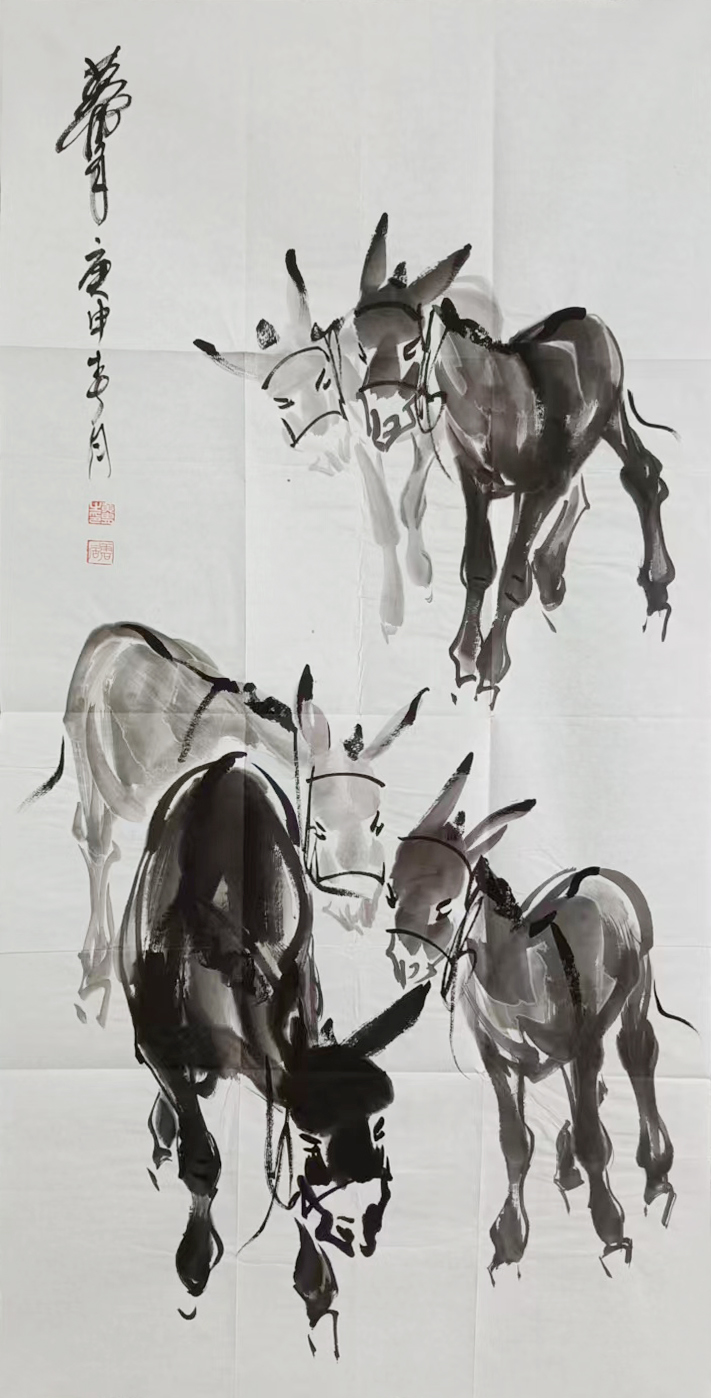 黄胄庚申春月